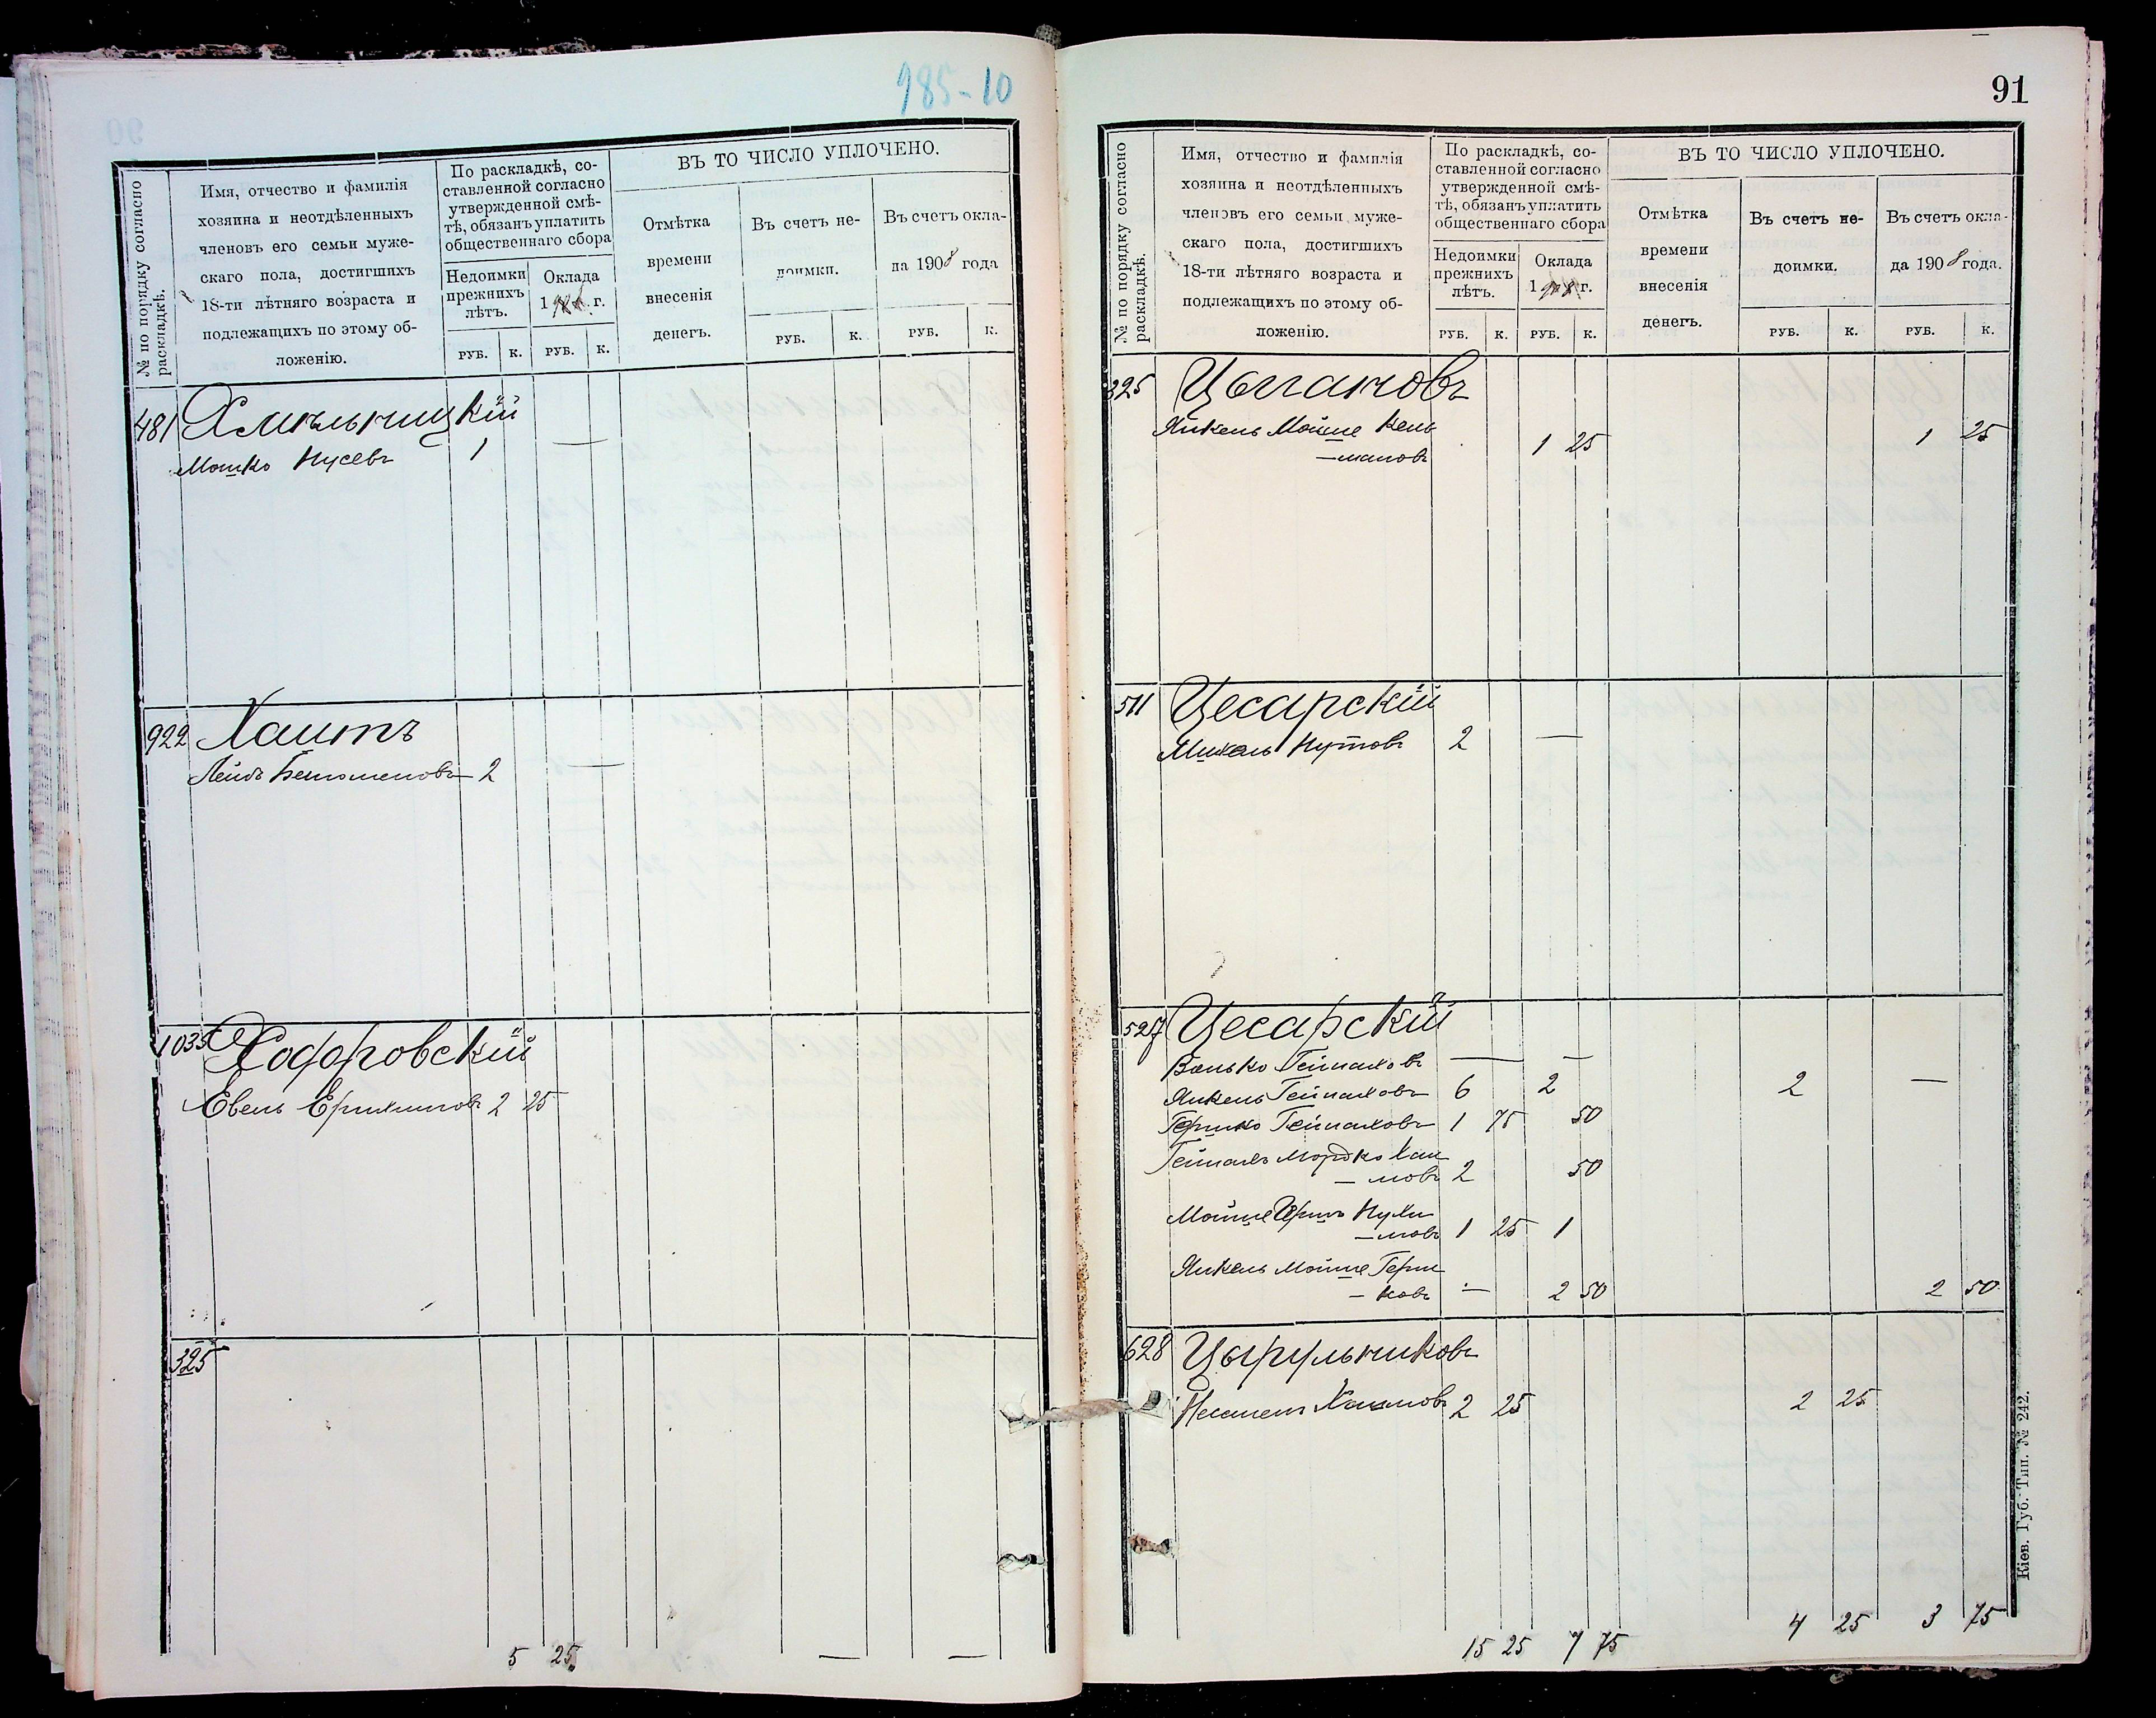 985-10
№ по порядку согласно раскладкѣ.
Имя, отчество и фамилія
хозяина и неотдѣленныхъ
членовъ его семьи муже-
скаго пола, достигшихъ
18-ти лѣтняго возраста и
подлежащихъ по этому об-
ложенію.
По раскладкѣ, со-
ставленной согласно
утвержденной смѣ-
тѣ, обязанъ уплатить
общественнаго сбора
Недоимки
прежнихъ
лѣтъ.
Оклада
1908 г.
РУБ. К. РУБ. К.
ВЪ ТО ЧИСЛО УПЛОЧЕНО.
Отмѣтка
времени
внесенія
денегъ.
Въ счетъ не-
доимки.
РУБ. К.
Въ счетъ окла-
да 1908 года
РУБ. К.
481 Хмѣльницкій
Мошко Нусевъ 1 —
922 Хаитъ
Лейбъ Бенюменовъ 2 —
1035 Ходоровскій
Евель Ерухимовъ 2 25
325
5 25 — —
91
№ по порядку согласно раскладкѣ.
Имя, отчество и фамилія
хозяина и неотдѣленныхъ
членовъ его семьи муже-
скаго пола, достигшихъ
18-ти лѣтняго возраста и
подлежащихъ по этому об-
ложенію.
По раскладкѣ, со-
ставленной согласно
утвержденной смѣ-
тѣ, обязанъ уплатить
общественнаго сбора
Недоимки
прежнихъ
лѣтъ.
Оклада
1908 г.
РУБ. К. РУБ. К.
ВЪ ТО ЧИСЛО УПЛОЧЕНО.
Отмѣтка
времени
внесенія
денегъ.
Въ счетъ не-
доимки.
РУБ. К.
Въ счетъ окла-
да 1908 года.
РУБ. К.
325 Цыпановъ
Янкель Мойше Кель
—мановъ 1 25 1 25
511 Цесарскій
Михель Нутовъ 2 —
527 Цесарскій
Волько Гейнаховъ — —
Янкель Гейнаховъ 6 2 2 —
Гершко Гейнаховъ 1 75 50
Гейнахъ Мордко Хаи
— мовъ 2 50
Мойше Гершъ Нухи
—мовъ 1 25 1
Янкель Мойше Герш
— ковъ — 2 50 2 50
628 Цырульниковъ
Хаимовъ 2 25 2 25
15 25 7 75 4 25 3 75
Кіев. Губ. Тип. № 242.